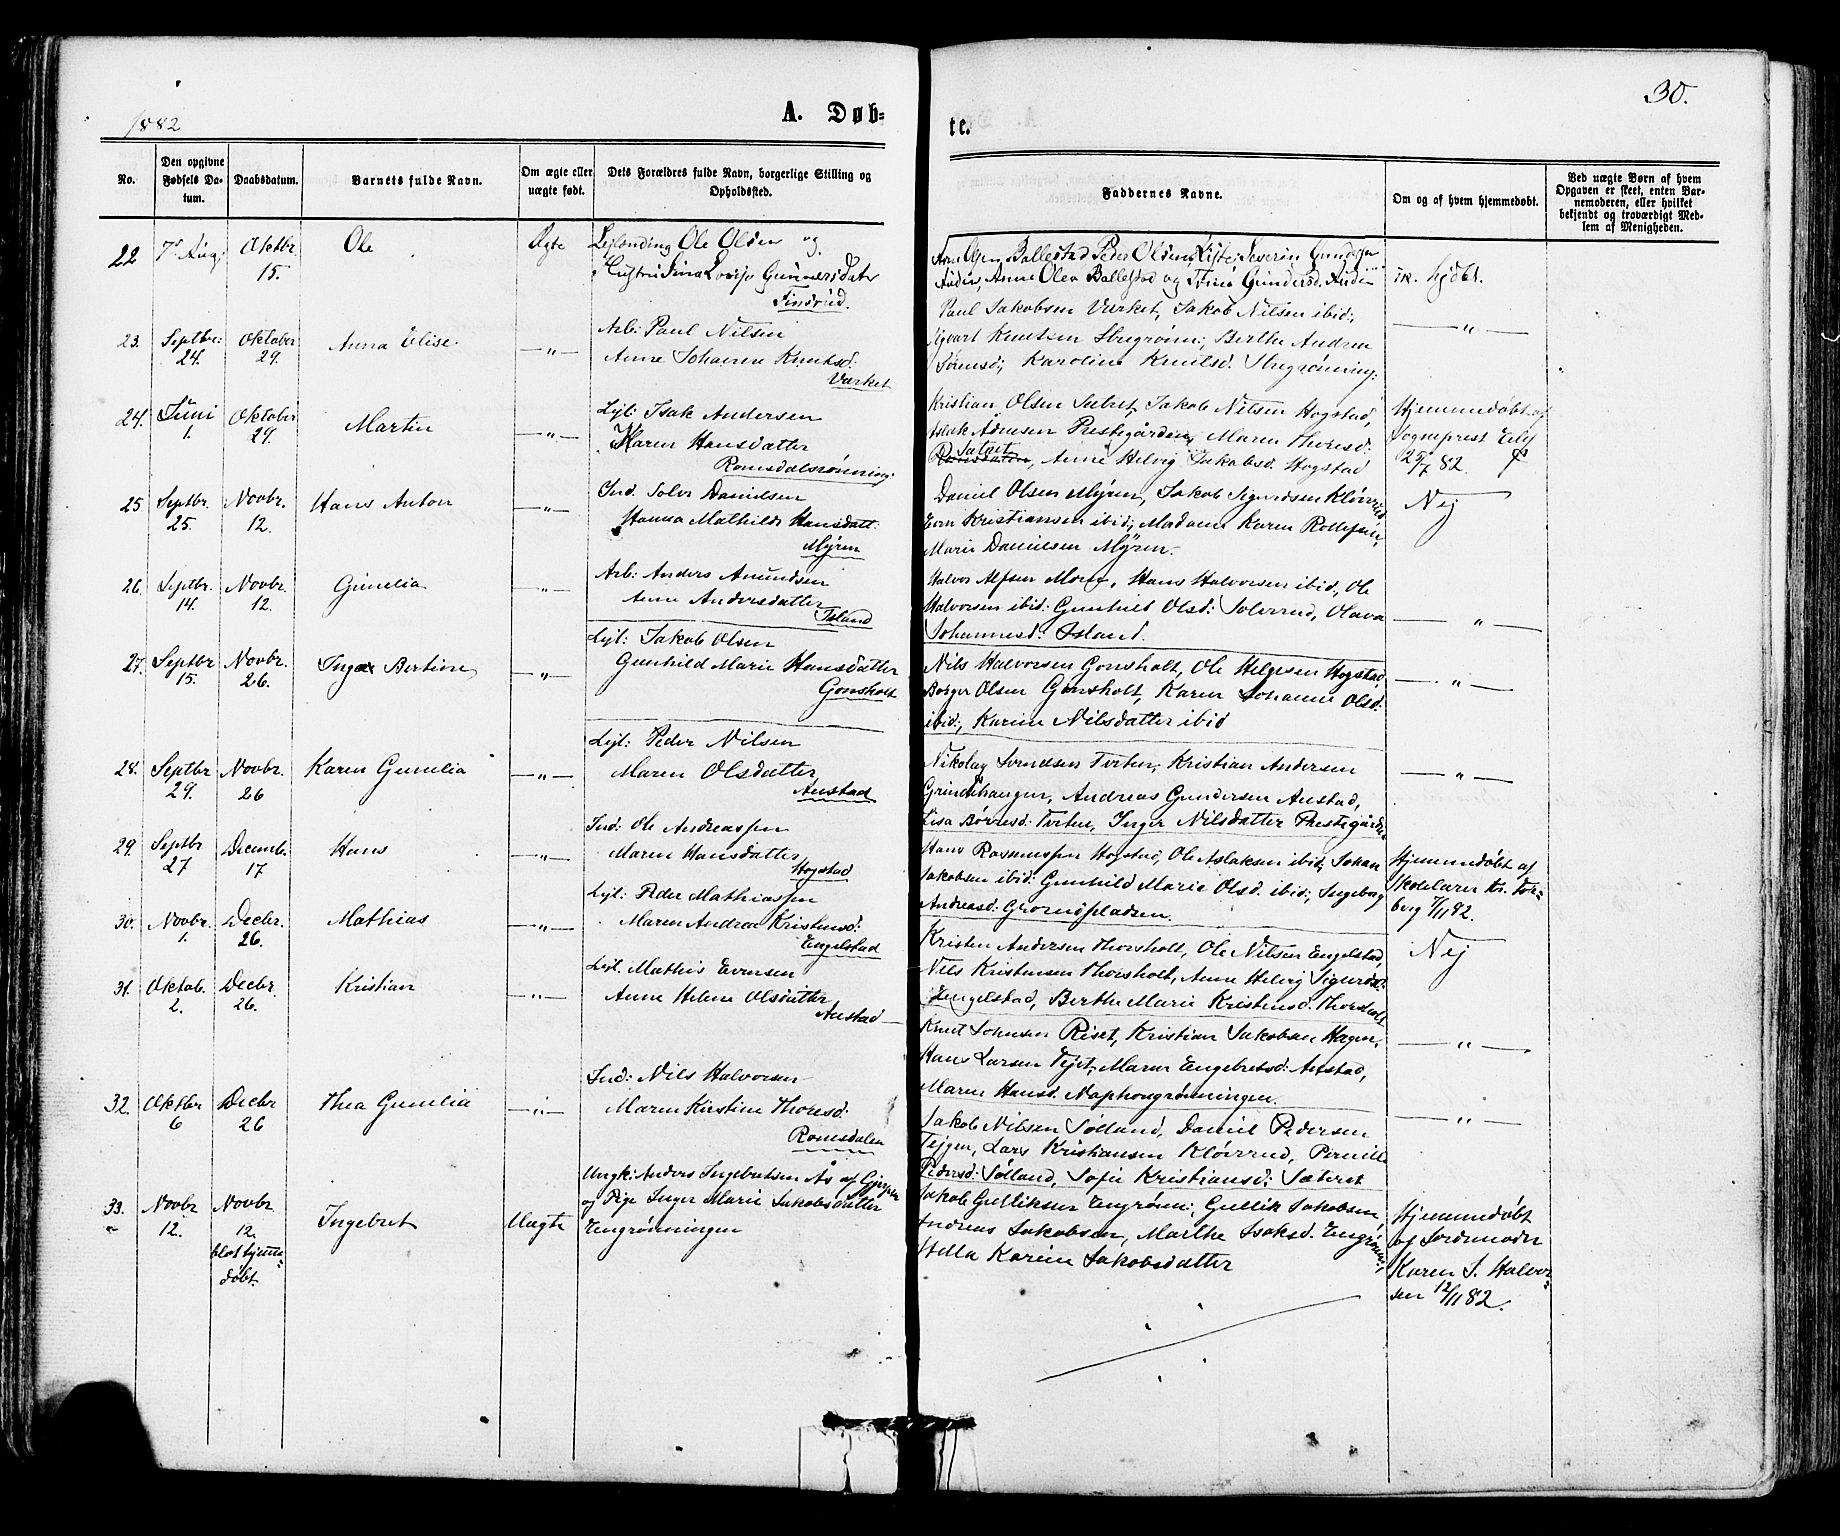 30.
1882
A. Døb=
te.
No.
Den opgivne Fødsels Da=tum.
Daabsdatum.
Barnets fulde Navn.
Om ægte eller uægte født.
Dets Forældres fulde Navn, borgerlige Stilling og Opholdsted.
Faddernes Navne.
Om og af hvem hjemmedøbt.
Ved uægte Børn af hvem Opgaven er skeet, enten Bar=nemoderen, eller hvilket bekjendt og troværdigt Med=lem af Menigheden.
22
7de Aug:
Oktbr. 15.
Ole
Ægte
Ole Olsen og
Gunnersdater
Tinsrud.
Ballestad Peder Olsen, Severin
Anne Olea Ballestad og
ik. hjdbt.
23.
Septbr: 24.
Oktober 29.
Anna Elise
—"—
Arb: Paul Nilsen
Anne Johanne Knutsd:
Værket
Paul Jakobsen Værket, Jakob Nilsen ibid:,
Sigvart Knutsen Berthe Andrea
Karoline Knutsd.
—"—
24.
Juni 1.
Oktober 29.
Martin
—"—
Lejl: Isak Andersen
Karen Hansdatter
Romsdalsrønning.
Kristian Olsen Sætret, Jakob Nilsen Hogstad,
Prestegården, Maren Thoresd:
Sætret
Anne Helvig Jakobsd: Hogstad
Hjemmedøbt af
Sogneprest
25/7 82.
25
Septbr. 25.
Novbr. 12.
Hans Anton
—"—
Ind. Danielsen
Hanna Mathilde Hansdatt:
Myren
Daniel Olsen Myren, Jakob Sigurdsen Kløvrud
Even Kristiansen ibid:, Madame Karen
Marie Danielsen Myren.
Nej
26.
Septbr. 14.
Novbr. 12.
Gunelia
—"—
Arb: Anders Amundsen
Anne Andersdatter
Island
Halvor Alfsen Moen, Hans Halvorsen ibid:, Ole
Halvorsen ibid: Gunhild Olsd: Solverud, Olava
Johannesd: Island.
—"—
27.
Septbr 15.
Novbr. 26.
Inga Bertine
—"—
Lejl: Jakob Olsen
Gunhild Marie Hansdatter
Gonsholt
Nils Halvorsen Gonsholt, Ole Helgesen Hogstad
Borger Olsen Gonsholt, Karen Johanne Olsd.
ibid:, Karine Nilsdatter ibid
—"—
28.
Septbr 29.
Novbr. 26
Karen Gunelia
—"—
Lejl: Peder Nilsen
Maren Olsdatter
Anstad
Nikolay Svendsen Tveten, Kristian Andersen
Andreas Gundersen Anstad,
Lisa Børresd: Tveten, Inger Nilsdatter Prestegården
—"—
29.
Septbr 27
Decemb. 17
Hans
—"—
Ind: Ole Andreassen
Maren Hansdatter
Hogstad
Hans Rasmussen Hogstad, Ole Aslaksen ibid, Johan
Jakobsen ibid: Gunhild Marie Olsd: ibid:, Ingeborg
Andreasd:
Hjemmedøbt af
Skolelærer Kr. Tor=
berg 7/11 82.
30.
Novbr. 1.
Decbr. 26.
Mathias
—"—
Lejl: Peder Mathiassen
Maren Andrea Kristensd:
Engelstad
Kristen Andersen Thorsholt, Ole Nilsen Engelstad,
Nils Kristensen Thorsholt, Anne Helvig Sigurdsd:
Engelstad, Berthe Marie Kristensd: Thorsholt
Nej
31.
Oktob. 2.
Decbr. 26.
Kristian
—"—
Lejl. Mathis Evensen
Anne Helene Olsdatter
Anstad
Knut Johnsen Riset, Kristian Jakobsen Hagen,
Hans Larsen Maren Engebretsd: Anstad,
Maren Hansd.
—"—
32.
Oktbr 6
Decbr 26
Thea Gunelia
—"—
Ind: Nils Halvorsen
Maren Kirstine Thoresd:
Romsdalen
Jakob Nilsen Sølland, Daniel Pedersen
Lars Kristiansen Kløvrud, Pernille
Pedersd: Sølland, Sofie Kristiansd: Sæteret
—"—
33.
Novbr 12.
Novbr 12. blot hjemme=døbt.
Ingebret
Uægte
Ungk: Anders Ingebretsen Ås af Gjerpen
og Pige Inger Marie Jakobsdatter
Engrønningen
Jakob Gulliksen Engrønn:, Gullik Jakobsen,
Andreas Jakobsen, Marthe Isaksd. Engrønn:,
Karine Jakobsdatter
Hjemmedøbt
af Jordemoder
Karen S. Halvor=
sen 12/11 82.